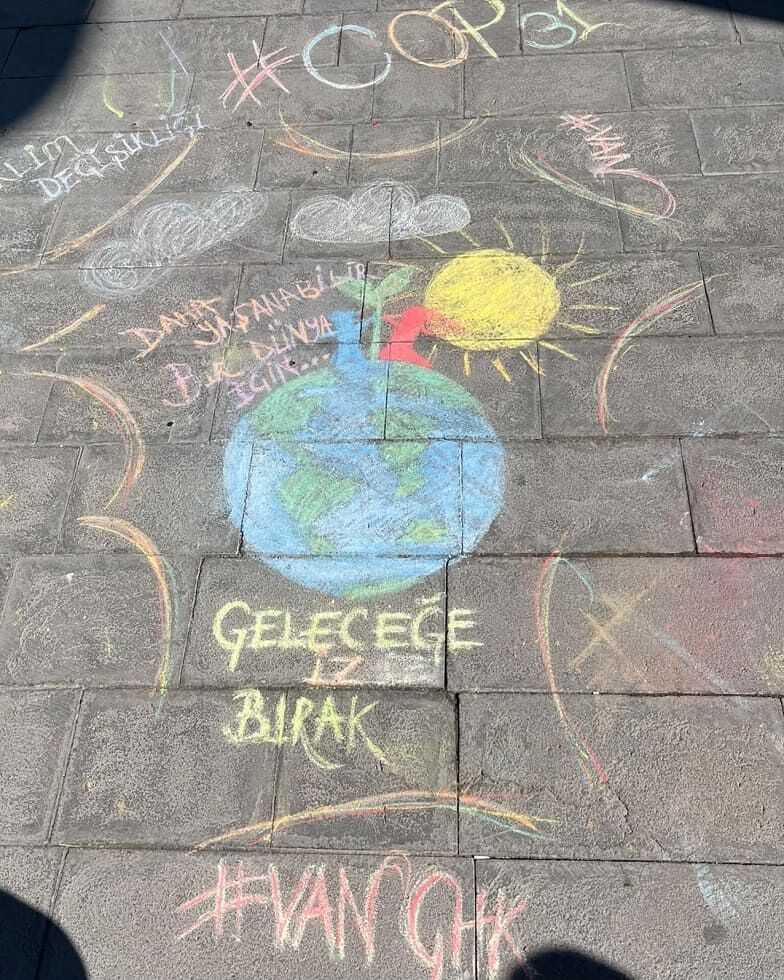 #COP31
#VAN
İKLİM
DEĞİŞİKLİĞİ
DAHA
YAŞANABİLİR
BİR DÜNYA
İÇİN...
GELECEĞE
İZ
BIRAK
#VAN ÇHK